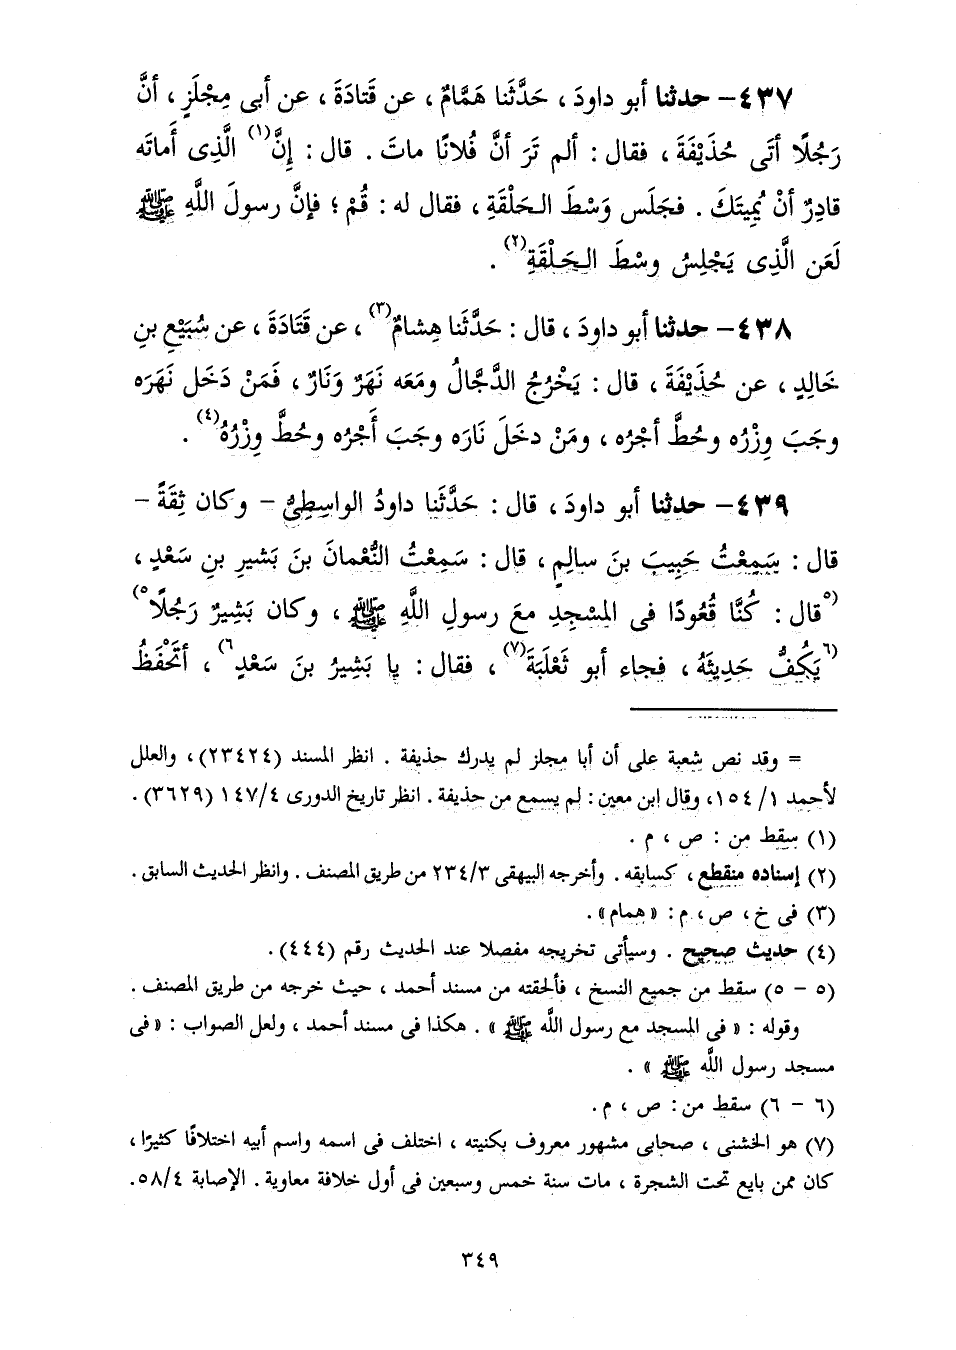 ٤٣٧- حدثنا أبو داودَ ، حَدَّثَنا هَمَّامٌ ، عن قَتادَةَ ، عن أبى مِجْلَزٍ ، أنَّ
رَجُلًا أتَى حُذَيْفَةَ ، فقال : ألم تَرَ أنَّ فُلانًا ماتَ . قال : إِنَّ(١) الَّذِى أَماتَه
قادِرٌ أنْ يُمِيتَكَ . فجَلَس وَسْطَ الحَلْقَةِ ، فقال له : قُمْ ؛ فإنَّ رسولَ اللَّهِ ﷺ
لَعَن الَّذِى يَجْلِسُ وسْطَ الحَلْقَةِ(٢) .
٤٣٨- حدثنا أبو داودَ ، قال : حَدَّثَنا هِشامٌ(٣) ، عن قَتَادَةَ ، عن سُبَيْعِ بنِ
خَالِدٍ ، عن حُذَيْفَةَ ، قال : يَخْرُجُ الدَّجَّالُ ومَعَه نَهَرٌ وَنَارٌ ، فَمَنْ دَخَل نَهَرَه
وجَبَ وِزْرُه وحُطَّ أجْرُه ، ومَنْ دخَلَ نَارَه وجَبَ أَجْرُه وحُطَّ وِزْرُهُ(٤) .
٤٣٩- حدثنا أبو داودَ ، قال : حَدَّثَنا داودُ الواسِطِىُّ - وكان ثِقَةً -
قال : سَمِعْتُ حَبِيبَ بنَ سالِمٍ ، قال : سَمِعْتُ النُّعْمانَ بنَ بَشيرِ بنِ سَعْدٍ ،
(٥قال : كُنَّا قُعُودًا فى المسْجِدِ معَ رسولِ اللَّهِ ﷺ ، وكان بَشِيرٌ رَجُلًا٥)
(٦يَكُفُّ حَدِيثَهُ ، فجاء أبو ثَعْلَبَةَ(٧) ، فقال : يا بَشِيرُ بنَ سَعْدٍ٦) ، أتَحْفَظُ
= وقد نص شعبة على أن أبا مجلز لم يدرك حذيفة . انظر المسند (٢٣٤٢٤) ، والعلل
لأحمد ١/ ١٥٤، وقال ابن معين : لم يسمع من حذيفة . انظر تاريخ الدورى ١٤٧/٤ (٣٦٢٩) .
(١) سقط من : ص ، م .
(٢) إسناده منقطع ، كسابقه . وأخرجه البيهقى ٢٣٤/٣ من طريق المصنف . وانظر الحديث السابق .
(٣) فى خ ، ص ، م : «همام» .
(٤) حديث صحيح . وسيأتى تخريجه مفصلا عند الحديث رقم (٤٤٤) .
(٥ - ٥) سقط من جميع النسخ ، فألحقته من مسند أحمد ، حيث خرجه من طريق المصنف .
وقوله : « فى المسجد مع رسول اللَّه ﷺ » . هكذا فى مسند أحمد ، ولعل الصواب : « فى
مسجد رسول اللَّه ﷺ » .
(٦ - ٦) سقط من : ص ، م .
(٧) هو الخشنى ، صحابى مشهور معروف بكنيته ، اختلف فى اسمه واسم أبيه اختلافًا كثيرًا ،
كان ممن بايع تحت الشجرة ، مات سنة خمس وسبعين فى أول خلافة معاوية . الإصابة ٥٨/٤.
٣٤٩